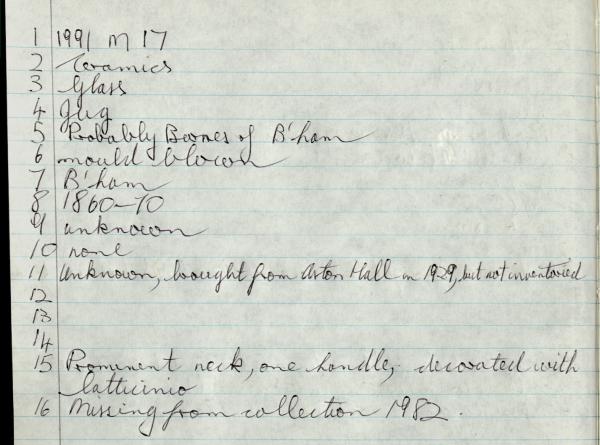 1 1991 M 17
2 Ceramics
3 Glass
4 Jug
5 Probably Bornes of B'ham
6 mould blown
7 B'ham
8 1860-70
9 unknown
10 none
11 Unknown, bought from Aston Hall in 1929, but not inventoried
12
13
14
15 Prominent neck, one handle, decorated with
latticinio
16 Missing from collection 1982.